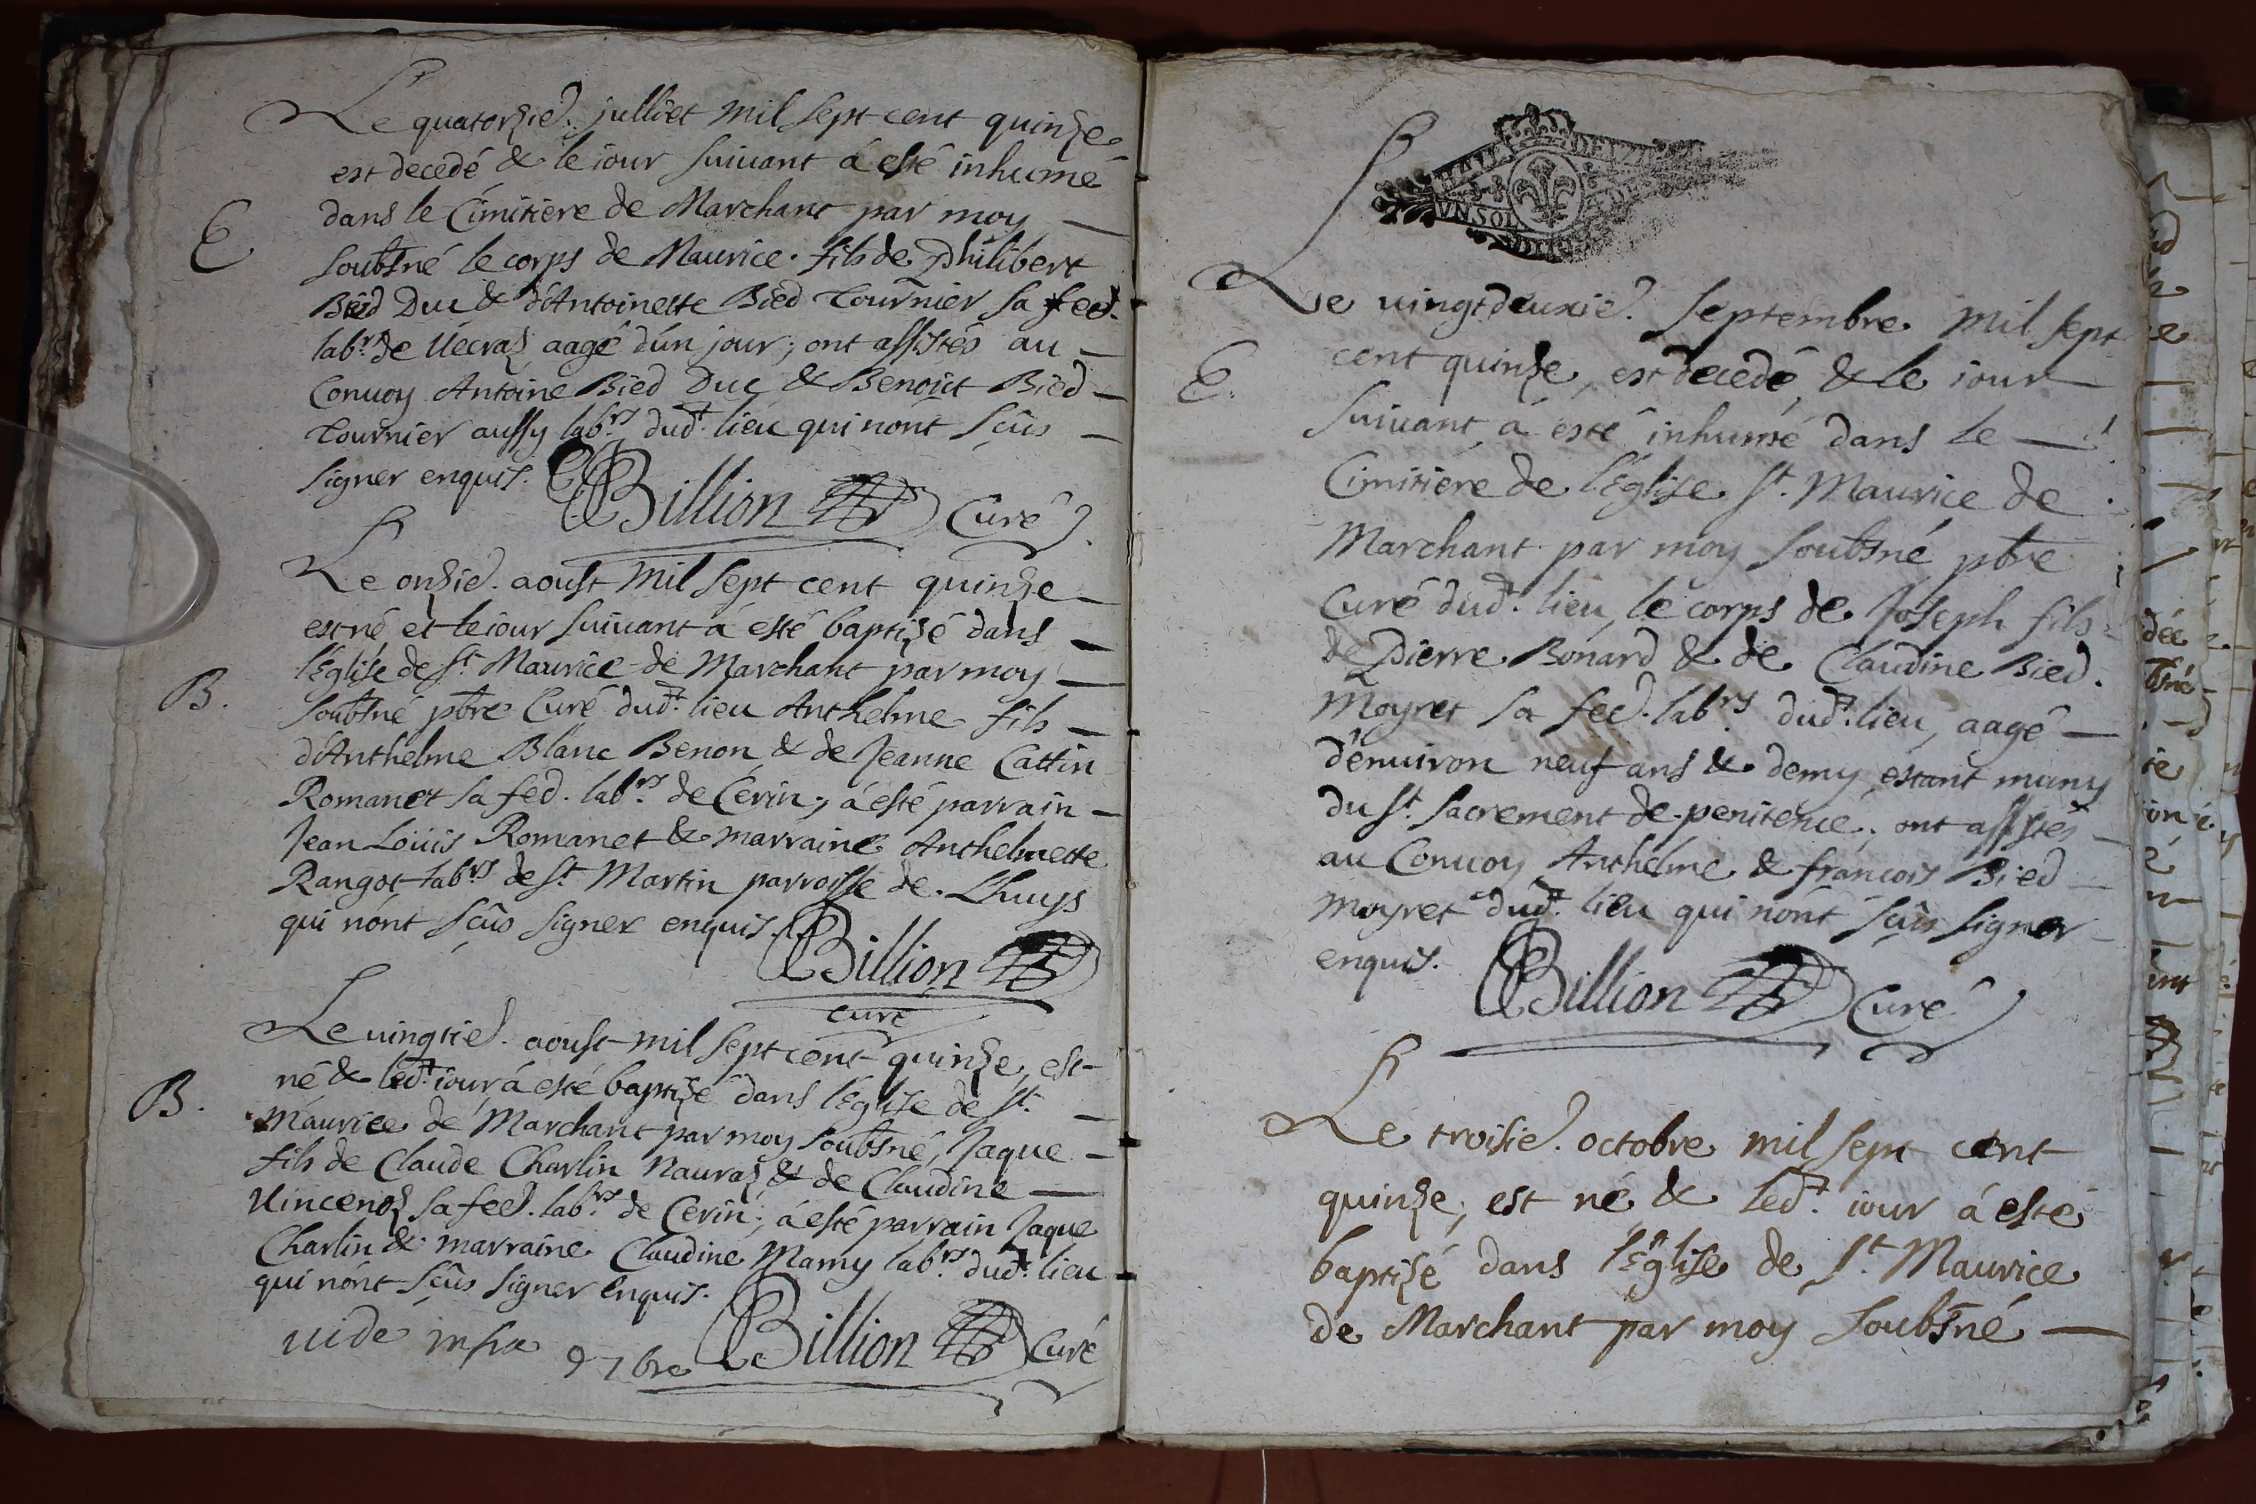 Le quatorzie. julliet mil sept cent quinze
est decedé & le iour suivant á esté inhumé
dans le Cimitiere de Marchant par moy
E
soubsné le corps de Maurice fils de Philibert
Bied Duc & d'Antoinette Bied Tournier sa fee.
labrs de Uécras aagé d'ún jour; ont assistés au
Convoy Antoine Bied Duc & Benoict Bied
Tournier aussy labrs dudt. lieu qui nónt sçûs
signer enquis. Billion Curé
Le onzie. aoust mil sept cent quinze
est né et le iour suivant á esté baptizé dans
l'Eglise de St. Maurice de Marchant par moy
B.
soubsné pbre Curé dudt. lieu Anthelme fils
d'Anthelme Blanc Benon & de Jeanne Cattin
Romanet sa fee. labrs de Cerin; á esté parrain
Jean Loüis Romanet & marraine Anthelmette
Rangot labrs de St. Martin parroisse de Lhuys
qui nónt sçûs signer enquis.
Billion
curé
Le uingtie. aoust mil sept cent quinze, est
né & ledt. iour á esté baptizé dans l'Eglise de St.
B.
Maurice de Marchant par moy soubsné, Jaque
fils de Claude Charlin Nauraz & de Claudine
Uincendz sa fee. labrs de Cerin; á esté parrain Jaque
Charlin & marraine Claudine Mamy labrs dudt. lieu
qui nónt sçûs signer enquis.
uide infra 9 7bre Billion Curé
UN SOL
Le uingtdeuxie. septembre mil sept
cent quinze, est decedé, & le iour
E.
suivant á esté inhumé dans le
Cimitiére de l'Eglise St. Maurice de
Marchant par moy soubsné pbre
Curé dudt. lieu, le corps de Joseph fils
de Pierre Bonard & de Claudine Bied
Moyret sa fee. labrs dudt. lieu, aagé
d'enuiron neuf ans & demy estant muny
du St. Sacrement de penitence; ont assistés
au Convoy Anthelme & françois Bied
Moyret dudt. lieu qui nónt sçûs signer
enquis. Billion Curé
Le troisie. octobre mil sept cent
quinze, est né & ledt. iour á esté
baptizé dans l'Eglise de St. Maurice
de Marchant par moy soubsné